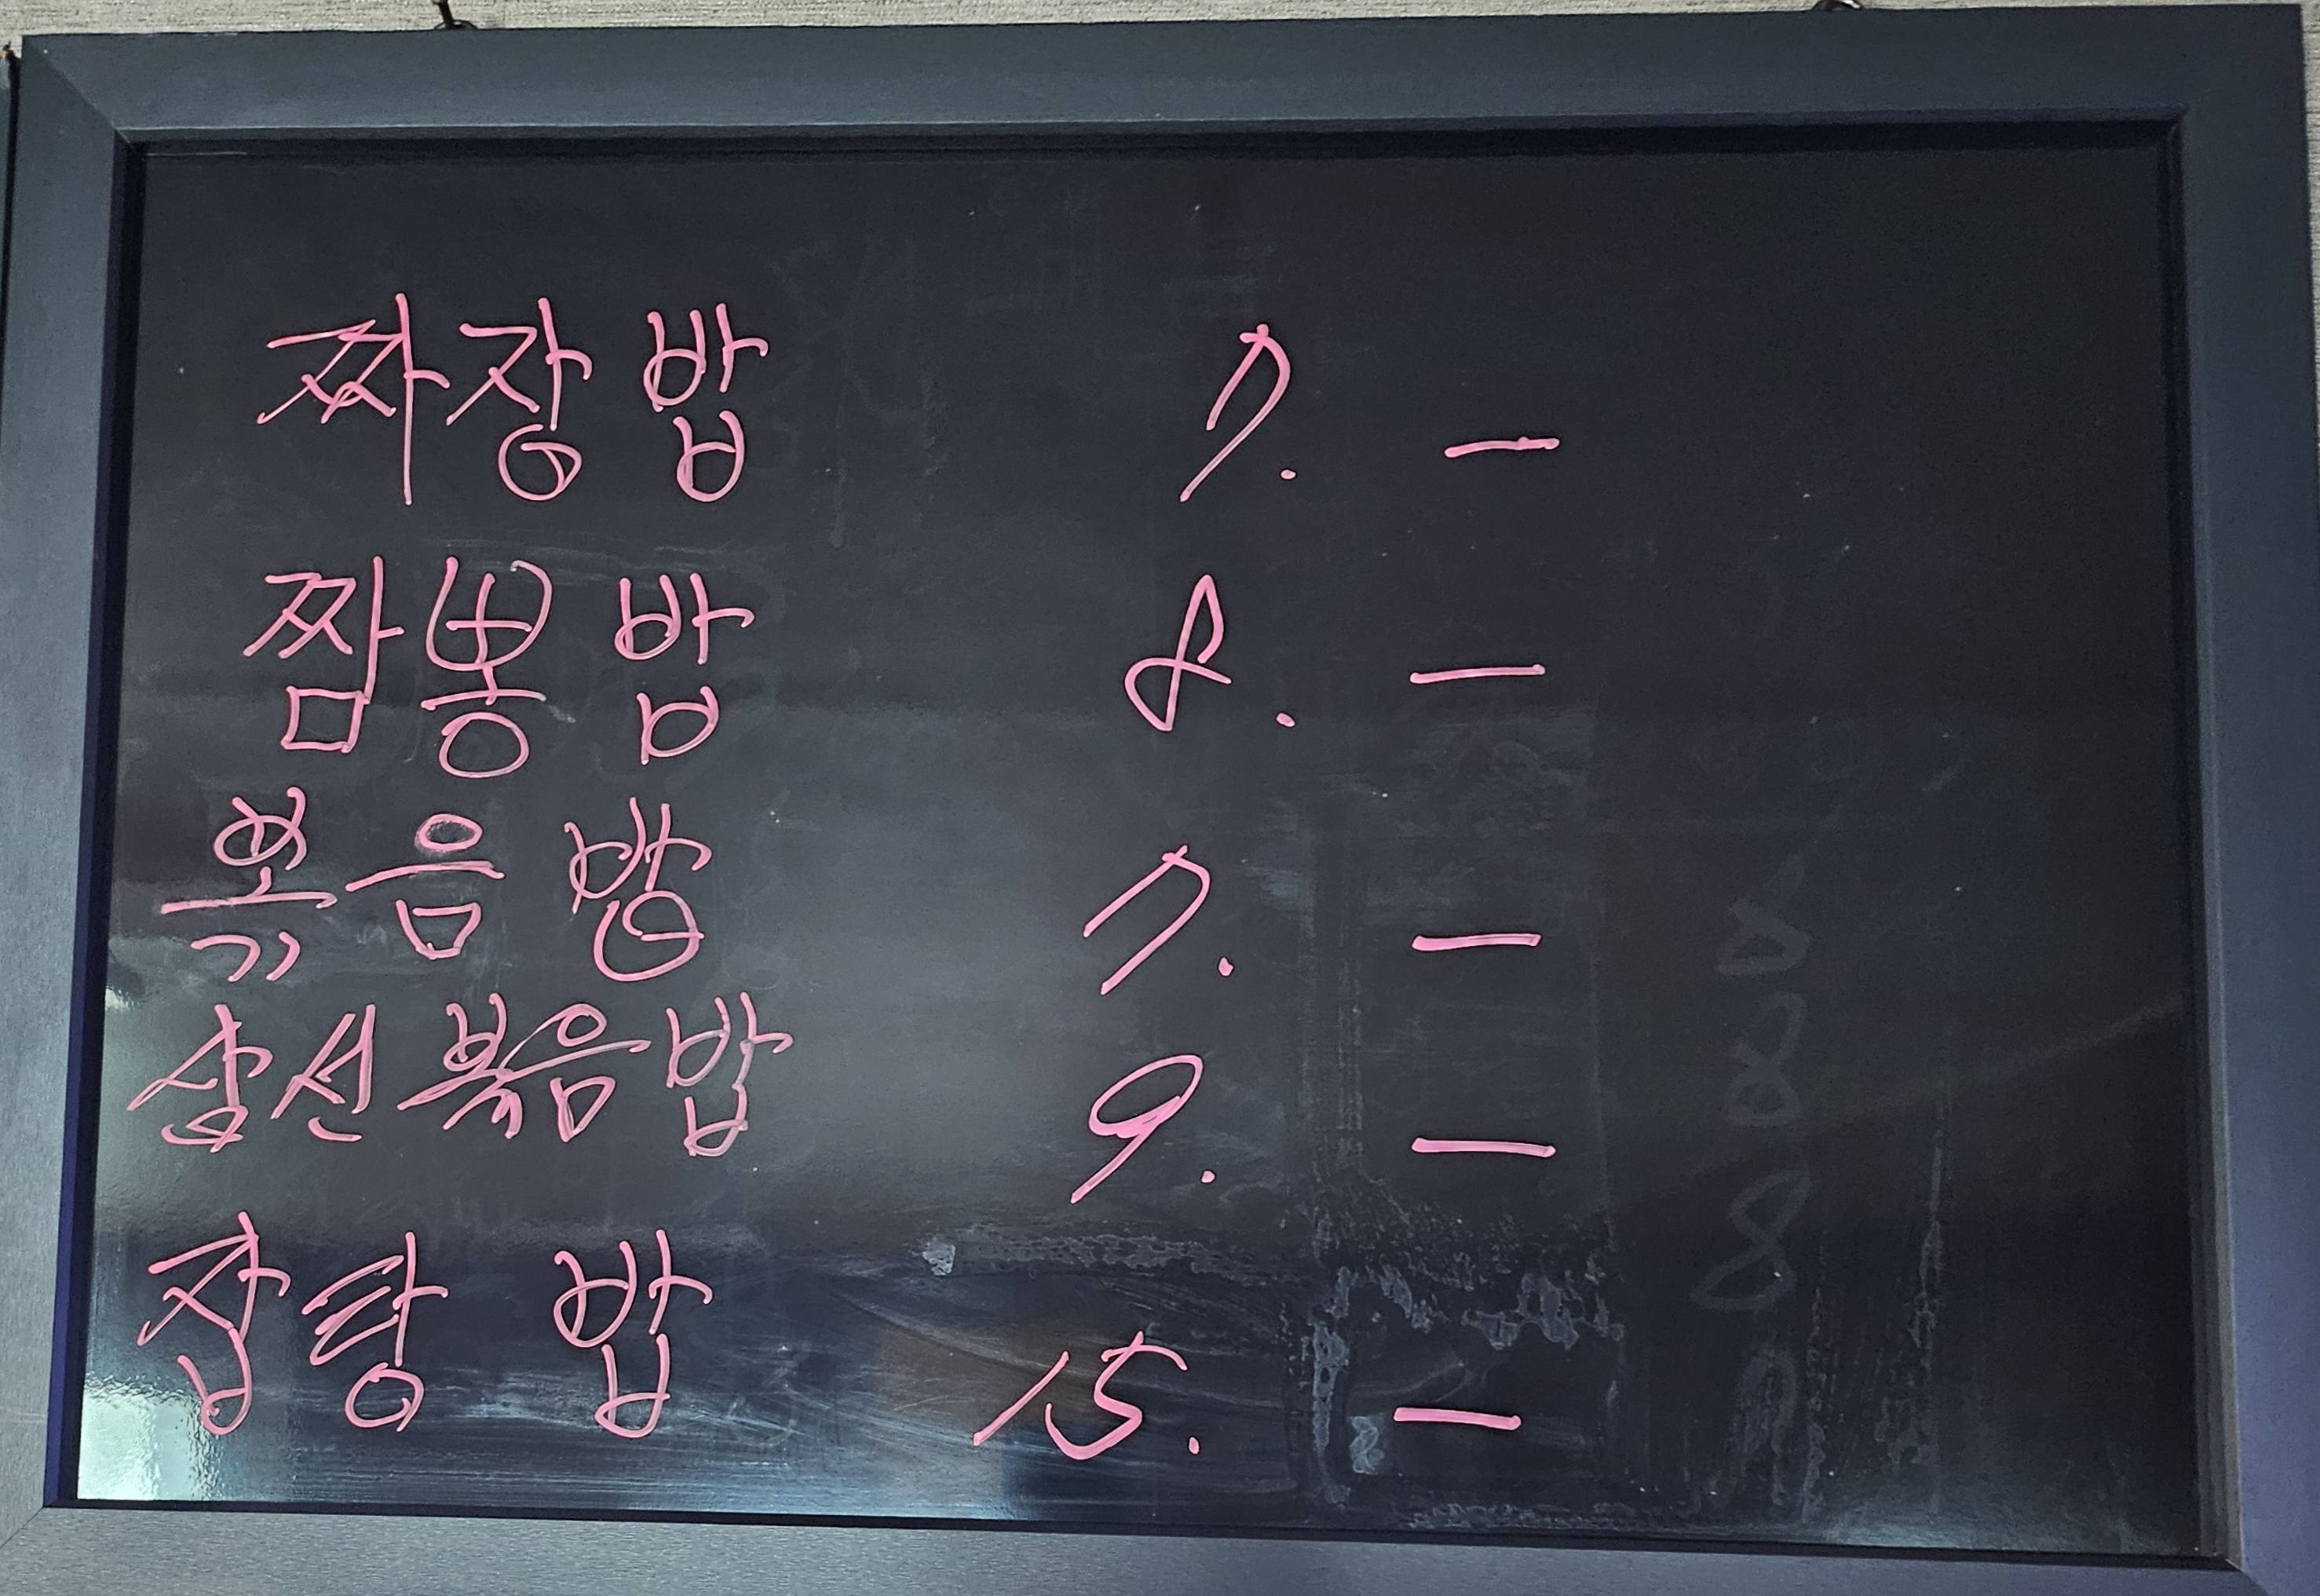 짜장밥 7. —
짬뽕밥 8. —
볶음밥 7. —
삼선볶음밥 9. —
잡탕밥 15. —